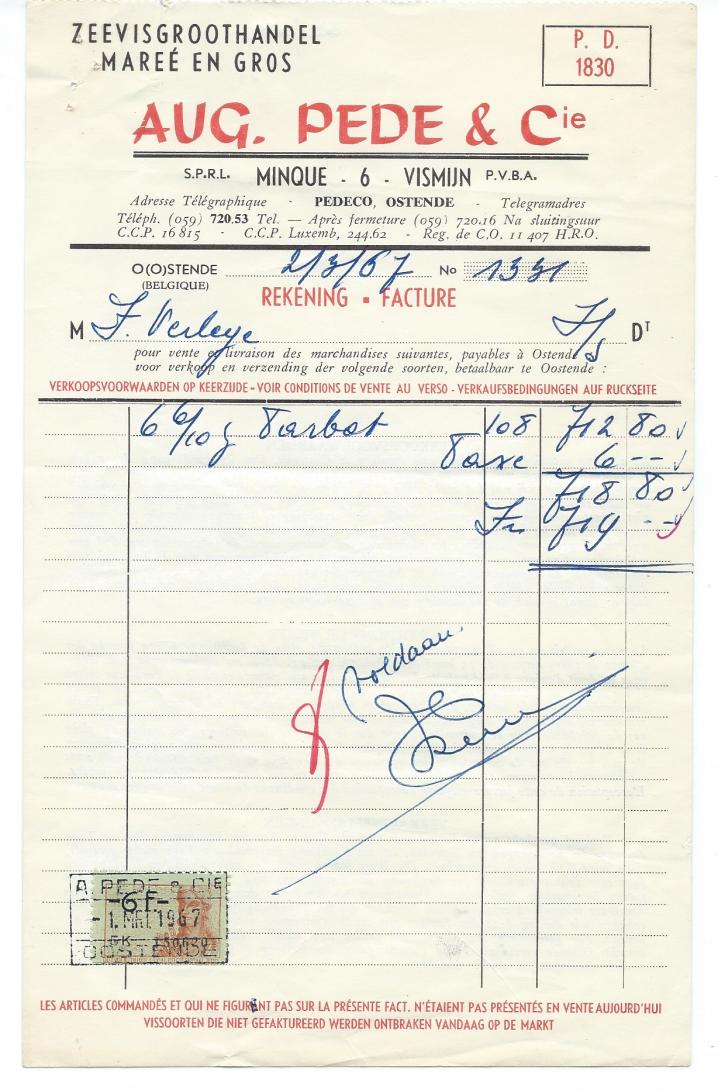 ZEEVISGROOTHANDEL
MAREÉ EN GROS
P. D.
1830
AUG. PEDE & Cie
S.P.R.L. MINQUE - 6 - VISMIJN P.V.B.A.
Adresse Télégraphique - PEDECO, OSTENDE - Telegramadres
Téléph. (059) 720.53 Tel. — Après fermeture (059) 720.16 Na sluitingsuur
C.C.P. 16815 - C.C.P. Luxemb, 244.62 - Reg. de C.O. 11 407 H.R.O.
O(O)STENDE 2/3/67 No 1331
(BELGIQUE)
REKENING - FACTURE
M F. Verleye DT
pour vente et livraison des marchandises suivantes, payables à Ostende
voor verkoop en verzending der volgende soorten, betaalbaar te Oostende :
VERKOOPSVOORWAARDEN OP KEERZIJDE - VOIR CONDITIONS DE VENTE AU VERSO - VERKAUFSBEDINGUNGEN AUF RUCKSEITE
6 6/10 g Tarbot 108 712 80
Taxe 6 --
718 80
Fr 719 --
voldaan.
A. PEDE & CIE
-6 F-
-1. MRT 1967
OOSTENDE
LES ARTICLES COMMANDÉS ET QUI NE FIGURENT PAS SUR LA PRÉSENTE FACT. N'ÉTAIENT PAS PRÉSENTÉS EN VENTE AUJOURD'HUI
VISSOORTEN DIE NIET GEFAKTUREERD WERDEN ONTBRAKEN VANDAAG OP DE MARKT